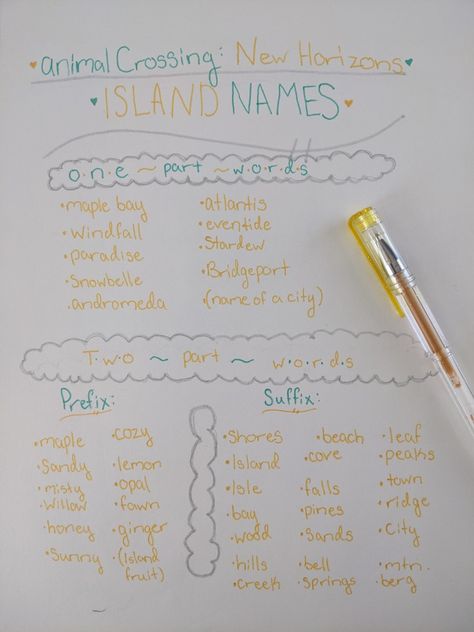 animal Crossing: New Horizons
ISLAND NAMES
o.n.e ~ part ~ w.o.r.d.s
•maple bay
•Windfall
•paradise
•Snowbelle
•andromeda
•atlantis
•eventide
•Stardew
•Bridgeport
•(name of a city)
T.w.o ~ part ~ w.o.r.d.s
Prefix:
•maple
•Sandy
•misty
•Willow
•honey
•Sunny
•cozy
•lemon
•opal
•fawn
•ginger
•(Island
fruit)
Suffix:
•Shores
•Island
•Isle
•bay
•wood
•hills
•creek
•beach
•cove
•falls
•pines
•Sands
•bell
•Springs
•leaf
•peaks
•town
•ridge
•City
•mtn.
•berg